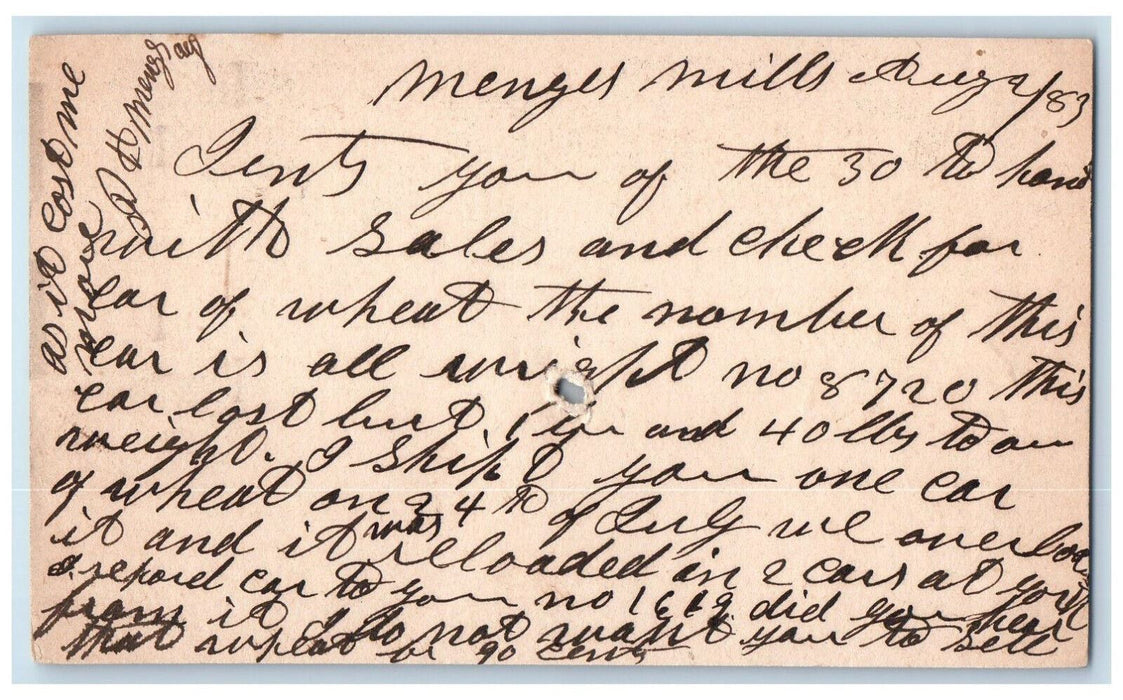 Menges Mills Aug 2/83
Gents your of the 30 th hand
with Sales and check for
car of wheat the nomber of this
car is all wright no 8720 this
car lost but 1 bu and 40 lbs to our
weight. I Shipt you one car
of wheat on 24 th of July we overload
it and it was reloaded in 2 cars at York
I repord car to you no 1619 did you hear
from it I do not want you to sell
that wheat be 90 cents
as it cost me
more
A H Menges